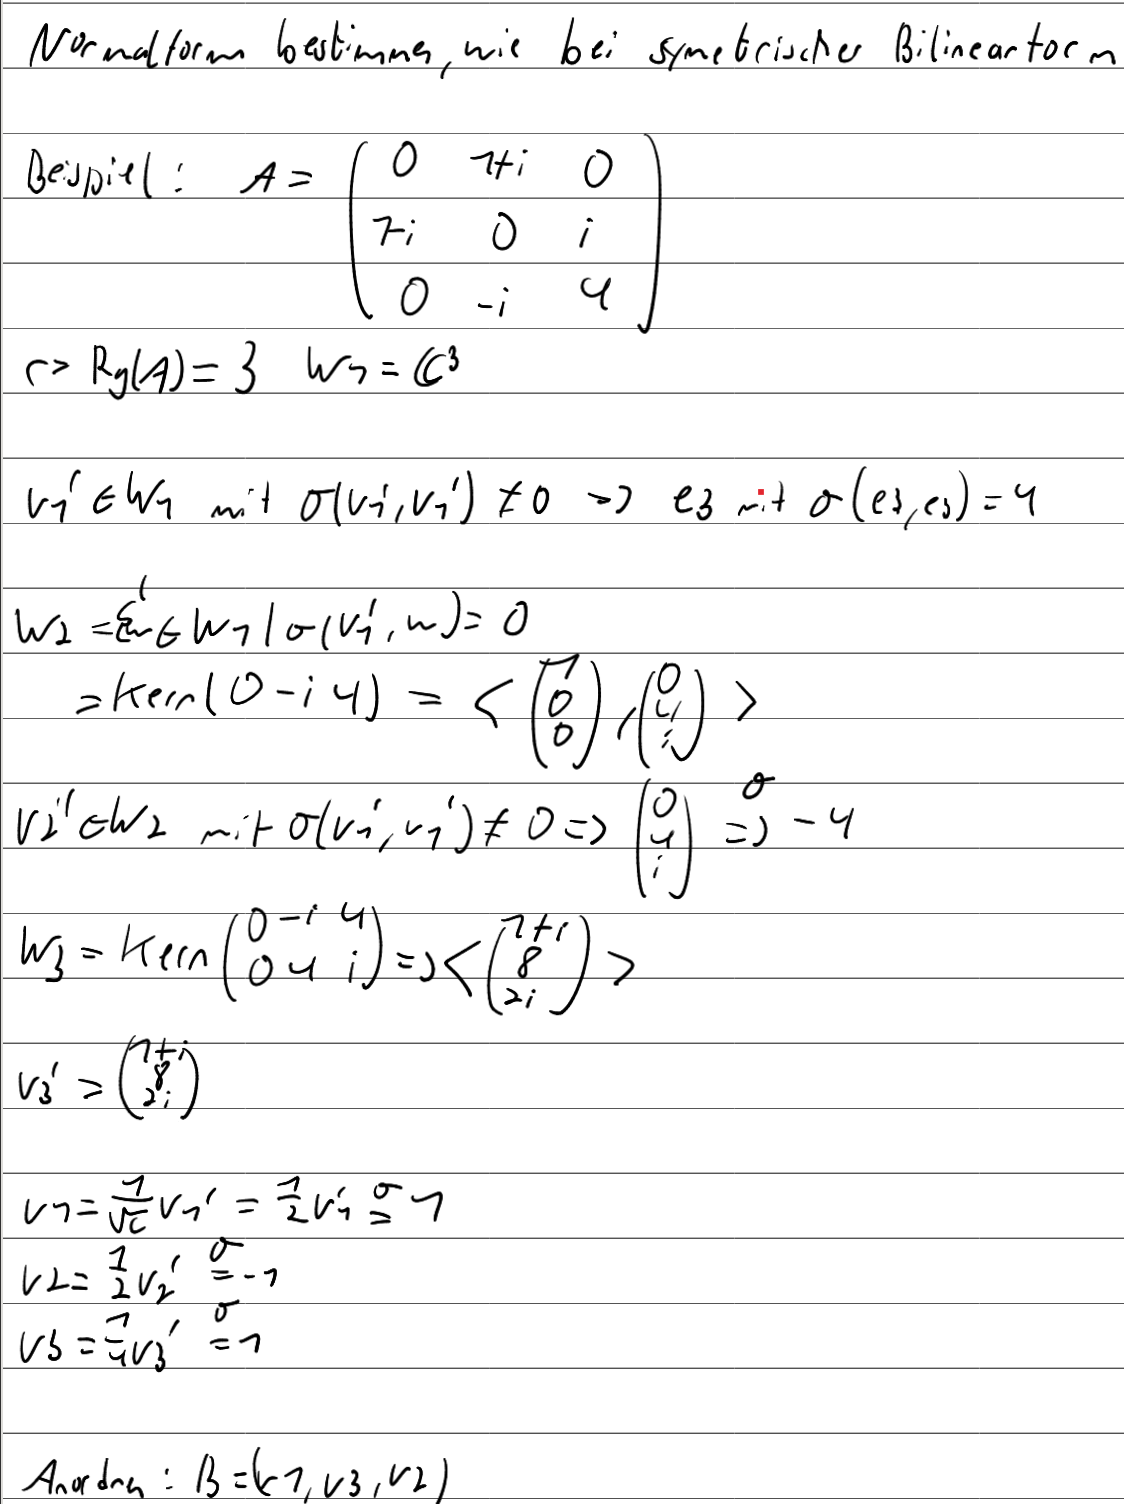 Normalform bestimmen, wie bei symetrischer Bilinearform
Beispiel: A = ( 0 1+i 0
1-i 0 i
0 -i 4 )
r> Rg(A) = 3 W1 = ℂ³
v1' ∈ W1 mit σ(v1', v1') ≠ 0 => e3 mit σ(e3, e3) = 4
W2 = {w ∈ W1 | σ(v1', w) = 0
= Kern( 0 -i 4 ) = < (1 0 0), (0 4 i) >
v2' ∈ W2 mit σ(v1', v1') ≠ 0 => (0 4 i) σ => -4
W3 = Kern ( 0 -i 4
0 4 i ) => < (1+i 8 2i) >
v3' = (1+i 8 2i)
v1 = 1/√c v1' = 1/2 v1' σ= 1
v2 = 1/2 v2' σ= -1
v3 = 1/4 v3' σ= 1
Anordnen: B = (v1, v3, v2)